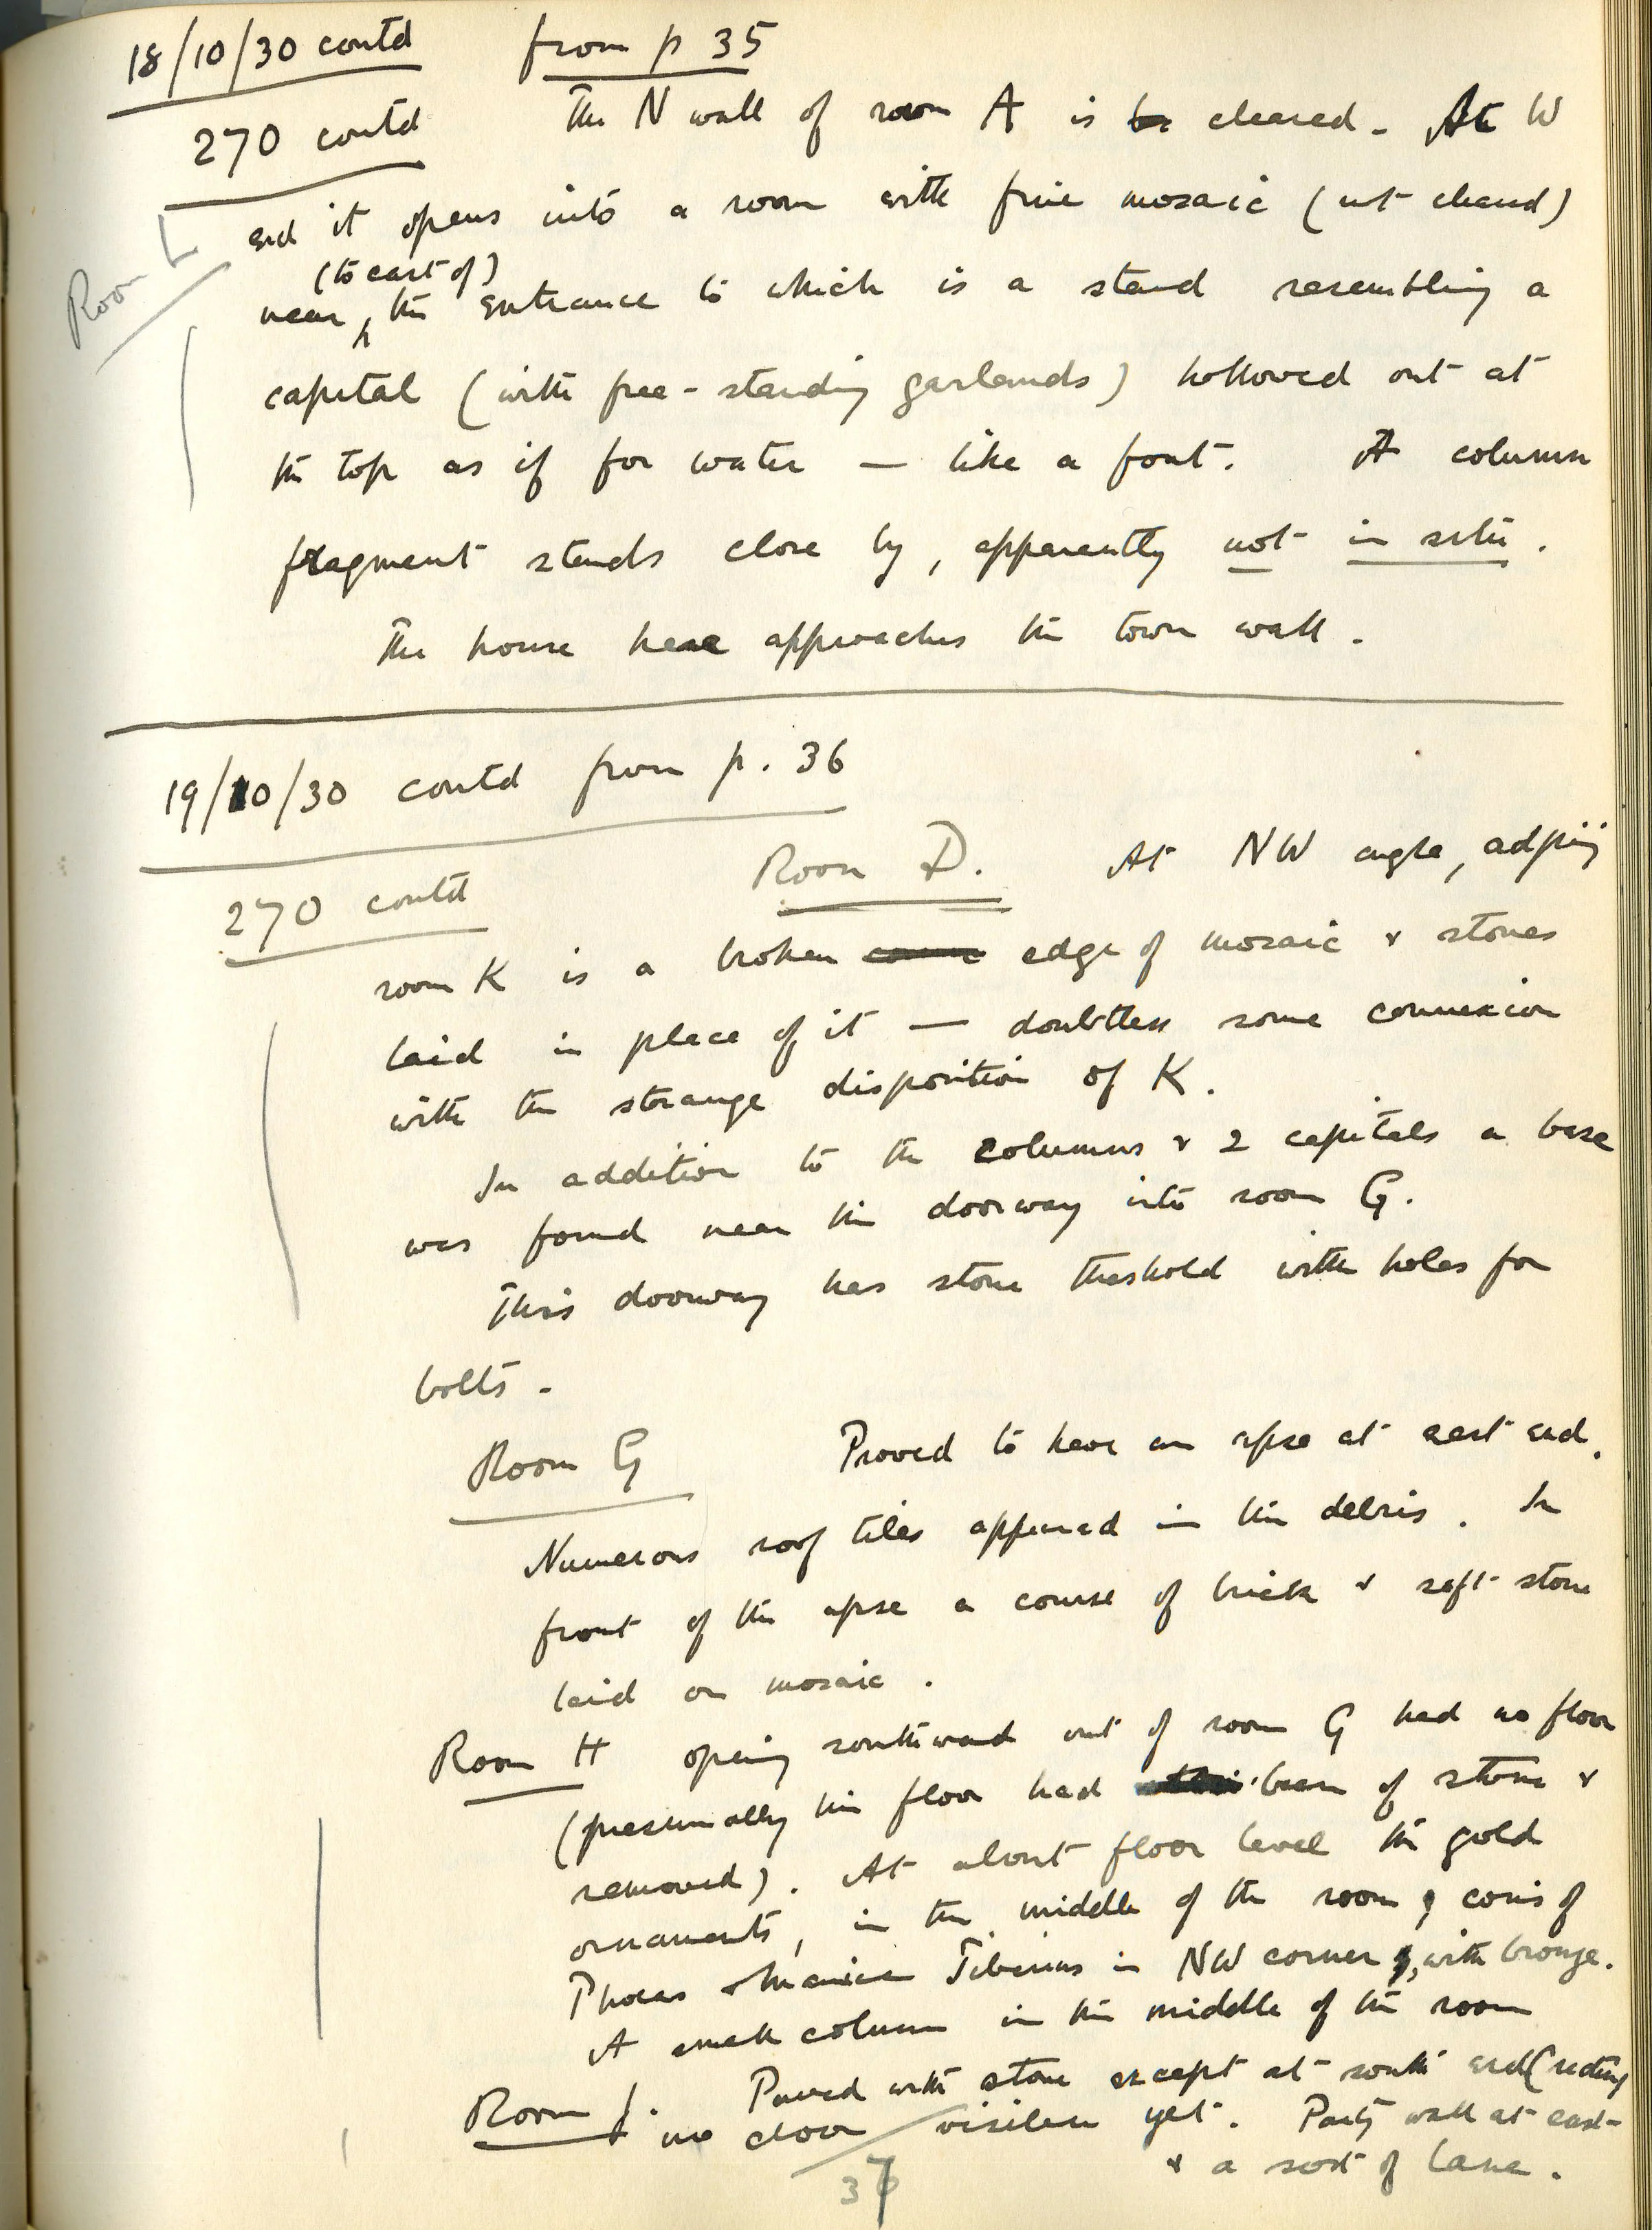 18/10/30 contd from p 35
270 contd The N wall of room A is cleared. At W
end it opens into a room with fine mosaic (not cleared)
Room L
(to east of)
near the entrance to which is a stand resembling a
capital (with free-standing garlands) hollowed out at
the top as if for water — like a font. A column
fragment stands close by, apparently not in situ.
The house here approaches the town wall.
19/10/30 contd from p. 36
270 contd Room D. At NW angle, adjoining
room K is a broken edge of mosaic & stones
laid in place of it — doubtless some connexion
with the strange disposition of K.
In addition to the columns & 2 capitals a base
was found near the doorway into room G.
This doorway has stone threshold with holes for
bolts.
Room G Proved to have an apse at east end.
Numerous roof tiles appeared in the debris. In
front of the apse a course of brick & soft stone
laid on mosaic.
Room H opening southward out of room G had no floor
(presumably the floor had been of stone &
removed). At about floor level the gold
ornaments, in the middle of the room, coins of
Phocas & Maurice Tiberius in NW corner, with bronze.
A small column in the middle of the room
Room J. Paved with stone except at south end
no door visible yet. Party wall at east
& a sort of lane.
37